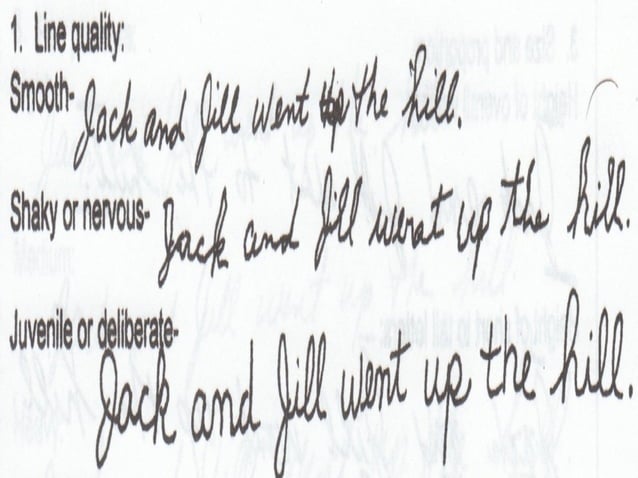 1. Line quality:
Smooth- Jack and Jill went up the hill.
Shaky or nervous- Jack and Jill went up the hill.
Juvenile or deliberate- Jack and Jill went up the hill.